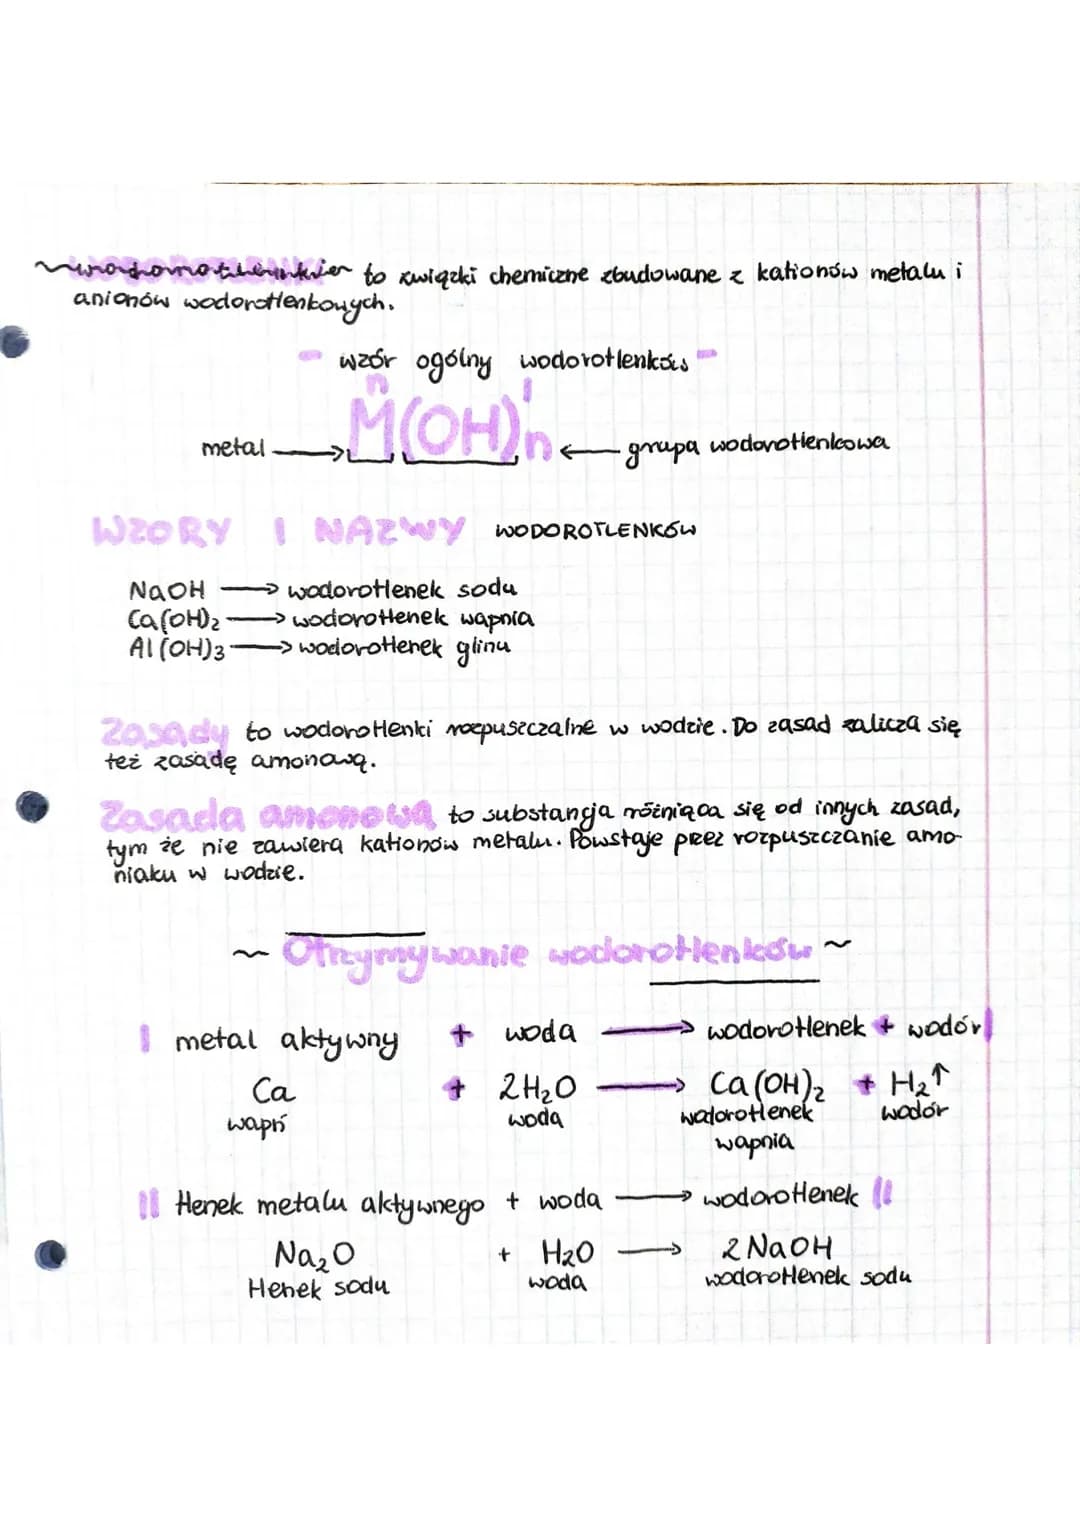 wodorotlenki to związki chemiczne zbudowane z kationów metalu i
anionów wodorotlenkowych.
- wzór ogólny wodorotlenków -
n I
metal → M(OH)n ← grupa wodorotlenkowa
WZORY I NAZWY WODOROTLENKÓW
NaOH → wodorotlenek sodu
Ca(OH)₂ → wodorotlenek wapnia
Al(OH)₃ → wodorotlenek glinu
Zasady to wodorotlenki rozpuszczalne w wodzie. Do zasad zalicza się
też zasadę amonową.
Zasada amonowa to substancja różniąca się od innych zasad,
tym że nie zawiera kationów metalu. Powstaje przez rozpuszczanie amo-
niaku w wodzie.
~ Otrzymywanie wodorotlenków ~
I metal aktywny + woda → wodorotlenek + wodór I
Ca + 2H₂O → Ca(OH)₂ + H₂↑
wapń woda wodorotlenek wodór
wapnia
II tlenek metalu aktywnego + woda → wodorotlenek II
Na₂O + H₂O → 2NaOH
tlenek sodu woda wodorotlenek sodu